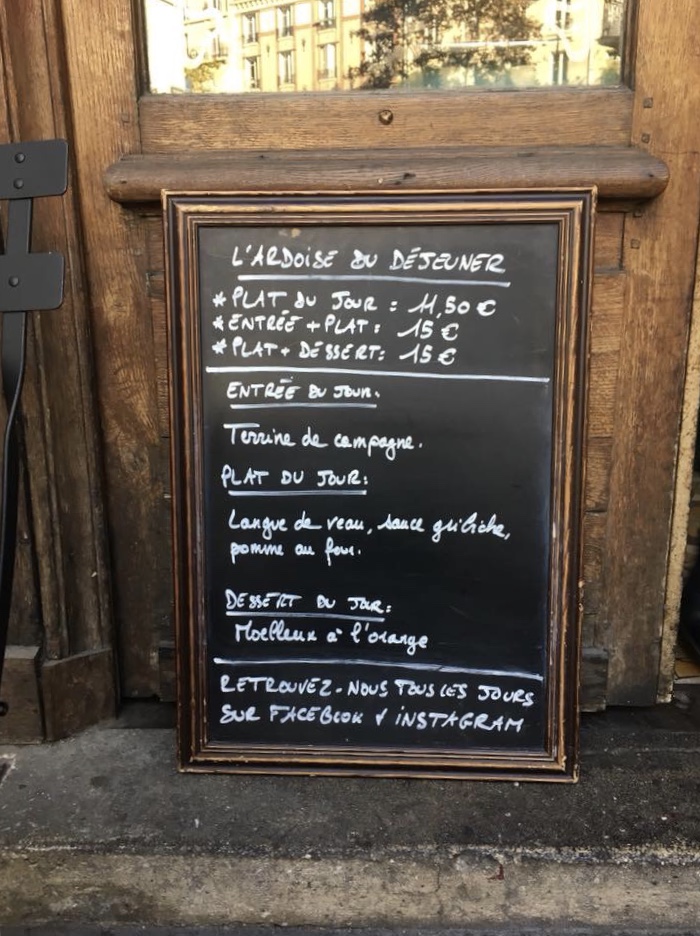 L'ARDOISE DU DÉJEUNER
* PLAT DU JOUR : 11,50 €
* ENTRÉE + PLAT : 15 €
* PLAT + DÉSSERT : 15 €
ENTRÉE DU JOUR.
Terrine de campagne.
PLAT DU JOUR :
Langue de veau, sauce gribiche,
pomme au four.
DESSERT DU JOUR :
Moelleux à l'orange
RETROUVEZ-NOUS TOUS LES JOURS
SUR FACEBOOK & INSTAGRAM